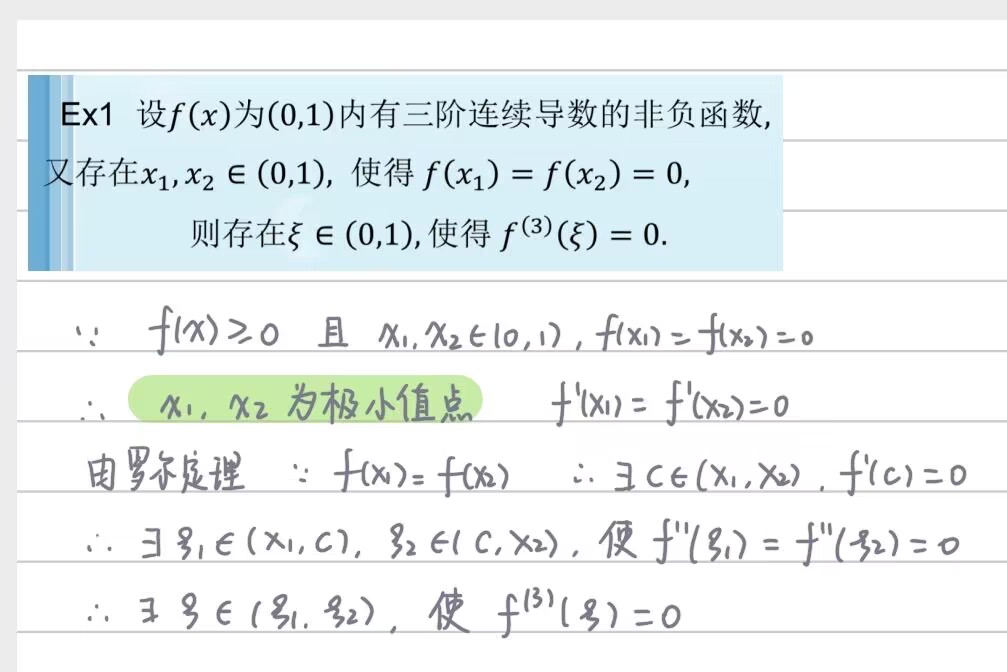 Ex1 设f(x)为(0,1)内有三阶连续导数的非负函数,
又存在x₁,x₂ ∈ (0,1), 使得 f(x₁) = f(x₂) = 0,
则存在ξ ∈ (0,1), 使得 f⁽³⁾(ξ) = 0.
∵ f(x)≥0 且 x₁,x₂∈(0,1), f(x₁)=f(x₂)=0
∴ x₁, x₂为极小值点 f'(x₁)=f'(x₂)=0
由罗尔定理 ∵ f(x₁)=f(x₂) ∴ ∃C∈(x₁,x₂), f'(C)=0
∴ ∃ξ₁∈(x₁,C), ξ₂∈(C,x₂), 使f''(ξ₁)=f''(ξ₂)=0
∴ ∃ξ∈(ξ₁,ξ₂), 使 f⁽³⁾(ξ)=0